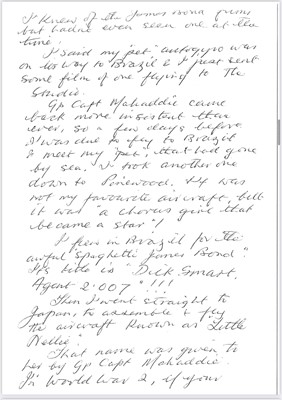 I knew of the James Bond films
but hadnt even seen one at the
time.
I said my 'pet' autogyro was
on its way to Brazil & I just sent
some film of one flying to the
Studio.
Gp Capt Mahaddie came
back more insistent than
ever, so a few days before
I was due to fly to Brazil
to meet my 'pet', that had gone
by sea, I took another one
down to Pinewood. It was
not my favourite aircraft, but
it was "a chorus girl that
became a star"!
I flew in Brazil for the
awful "Spaghetti James Bond".
Its title is "Dick Smart,
Agent 2.007"!!!
Then I went straight to
Japan, to assemble & fly
the aircraft known as 'Little
Nellie'.
That name was given to
her by Gp Capt Mahaddie.
In World War 2, if your